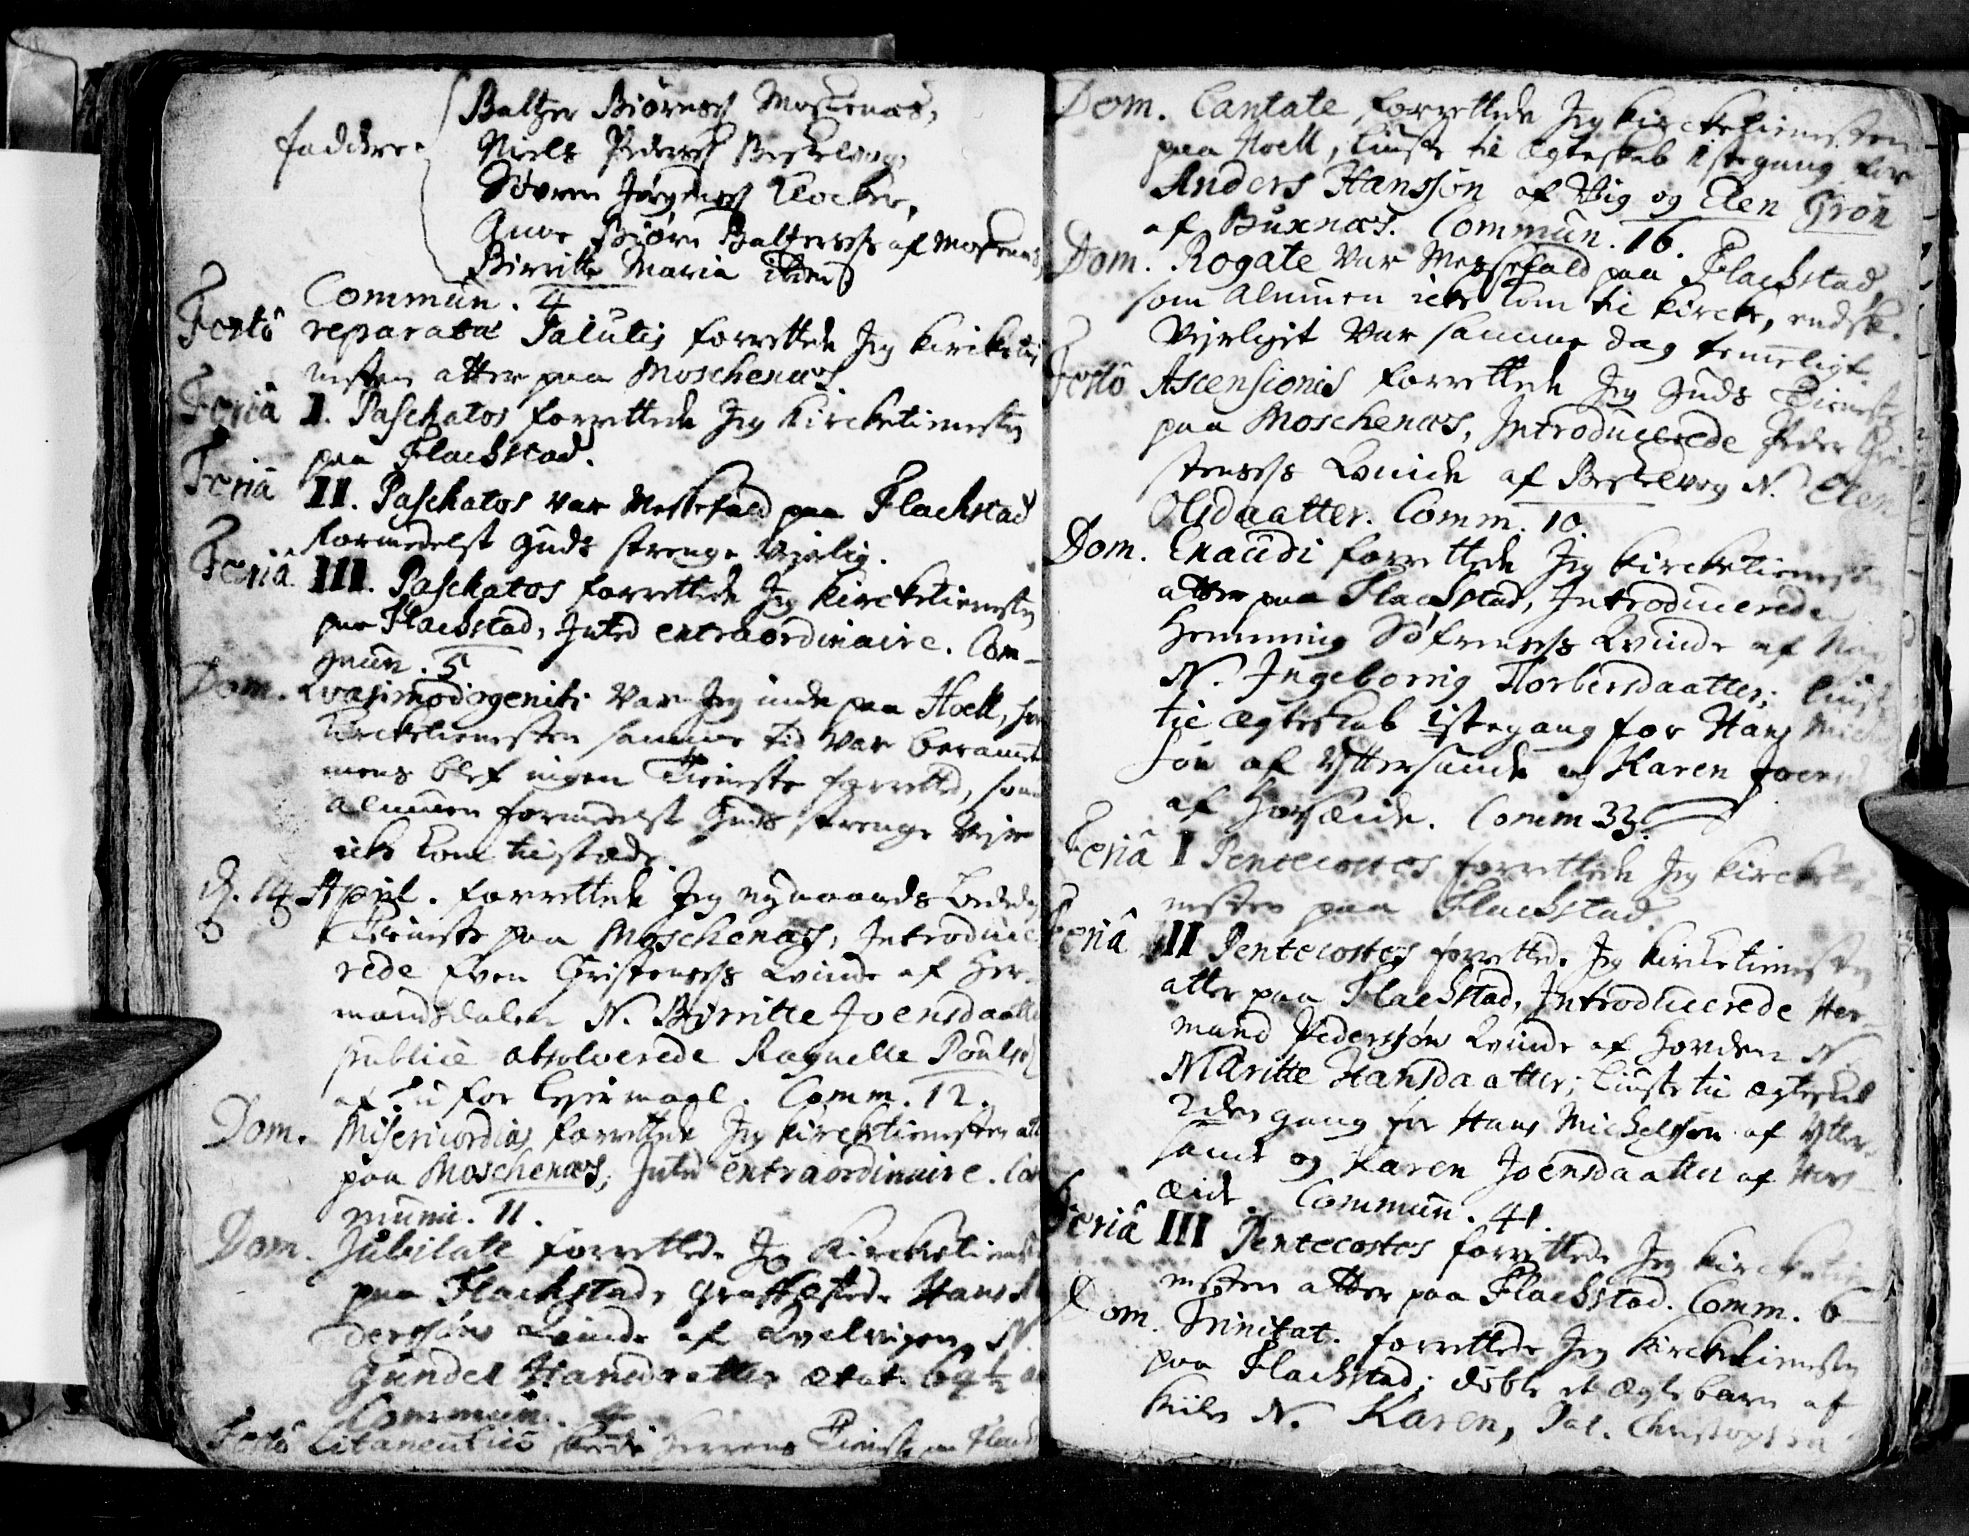 Baltzer Biørnss Moskenæs,
faddere Niels Pederss Beskelvog,
Søvren Jørgenss Klocker,
Anne Biørn Baltzerss af Moskenæs
Birritte Maria item
Commun. 4
Festô reparatæ Salutis forrettede Jeg Kirketie
nesten atter paa Moschenæs.
Feriâ I. Paschatos forrettede Jeg Kircketienesten
paa Flackstad.
Feriâ II. Paschatos var Messefald paa Flackstad
formedelst Guds strenge Vejrlig.
Feriâ III. Paschatos forrettede Jeg Kircketienesten
paa Flackstad, Inted extraordinaire. Com-
mun. 5
Dom. Qvasimodogeniti var Jeg inde paa Hoell,
Kircketienesten samme tid var berammet
mens blef ingen Tieneste forretted, som
Almuen formedelst Guds strenge Vejr
icke kom tilstæde.
d. 14 April. forrettede Jeg
Tieneste paa Moschenæs, Introduce-
rede Even Christenss Qvinde af Her-
mandsdalen N. Birritte Joensdaatter
publicè absolverede Ragnelle Poulsd
af for Lejermaal. Comm. 12.
Dom. Misericordias forrettede Jeg Kircketienesten atter
paa Moschenæs, Inted extraordinaire. Com
muni. 11.
Dom. Jubilate forrettede Jeg Kircketienest
paa Flackstad, Hans
derssøns Qvinde af Qvalvigen, N.
Gundel Hansdaatter ætat. 69½
Commun. 4
Festô Litaneutico Tieneste paa Flackst
Dom. Cantate forrettede Jeg Kircketienesten
paa Hoell, liuste til Ægteskab 1ste gang for
Anders Hanssøn af Vig og Elen Grøn
af Buxnæs. Commun. 16.
Dom. Rogate var Messefald paa Flackstad
som Almuen icke kom til Kircke, endsk.
Vejrliget var samme dag temeligt.
Festô Ascensionis forrettede Jeg Guds Tieneste
paa Moschenæs, Introducerede Peder Chri
stenss Qvinde af Beskelvog N. Elen
Olsdaatter. Comm. 10.
Dom. Exaudi forrettede Jeg Kircketienesten
atter paa Flackstad, Introducerede
Hemming Søfrenss Qvinde af
N. Ingeborrig Thorbersdaatter; liuste
til Ægteskab 1ste gang for Hans Michel
søn af Yttersande og Karen Joensd
af Horsæide. Comm 33.
Feriâ I Pentecostes forrettede Jeg Kircketie-
nesten paa Flackstad.
Feriâ II Pentecostes forrettede Jeg Kircketienesten
atter paa Flackstad, Introducerede Her-
mand Pederssøns Qvinde af Horden N.
Maritte Hansdaatter; liuste til Ægteskab
2den gang for Hans Michelssøn af Ytter-
sand og Karen Joensdaatter af Hors-
æide. Commun. 41.
Feriâ III Pentecostes forrettede Jeg Kircketie
nesten atter paa Flackstad. Comm. 6
Dom. Trinitat. forrettede Jeg Kircketienesten
paa Flackstad; døbte et Ægte barn af
Kiiln N. Karen, Pat. Christophen